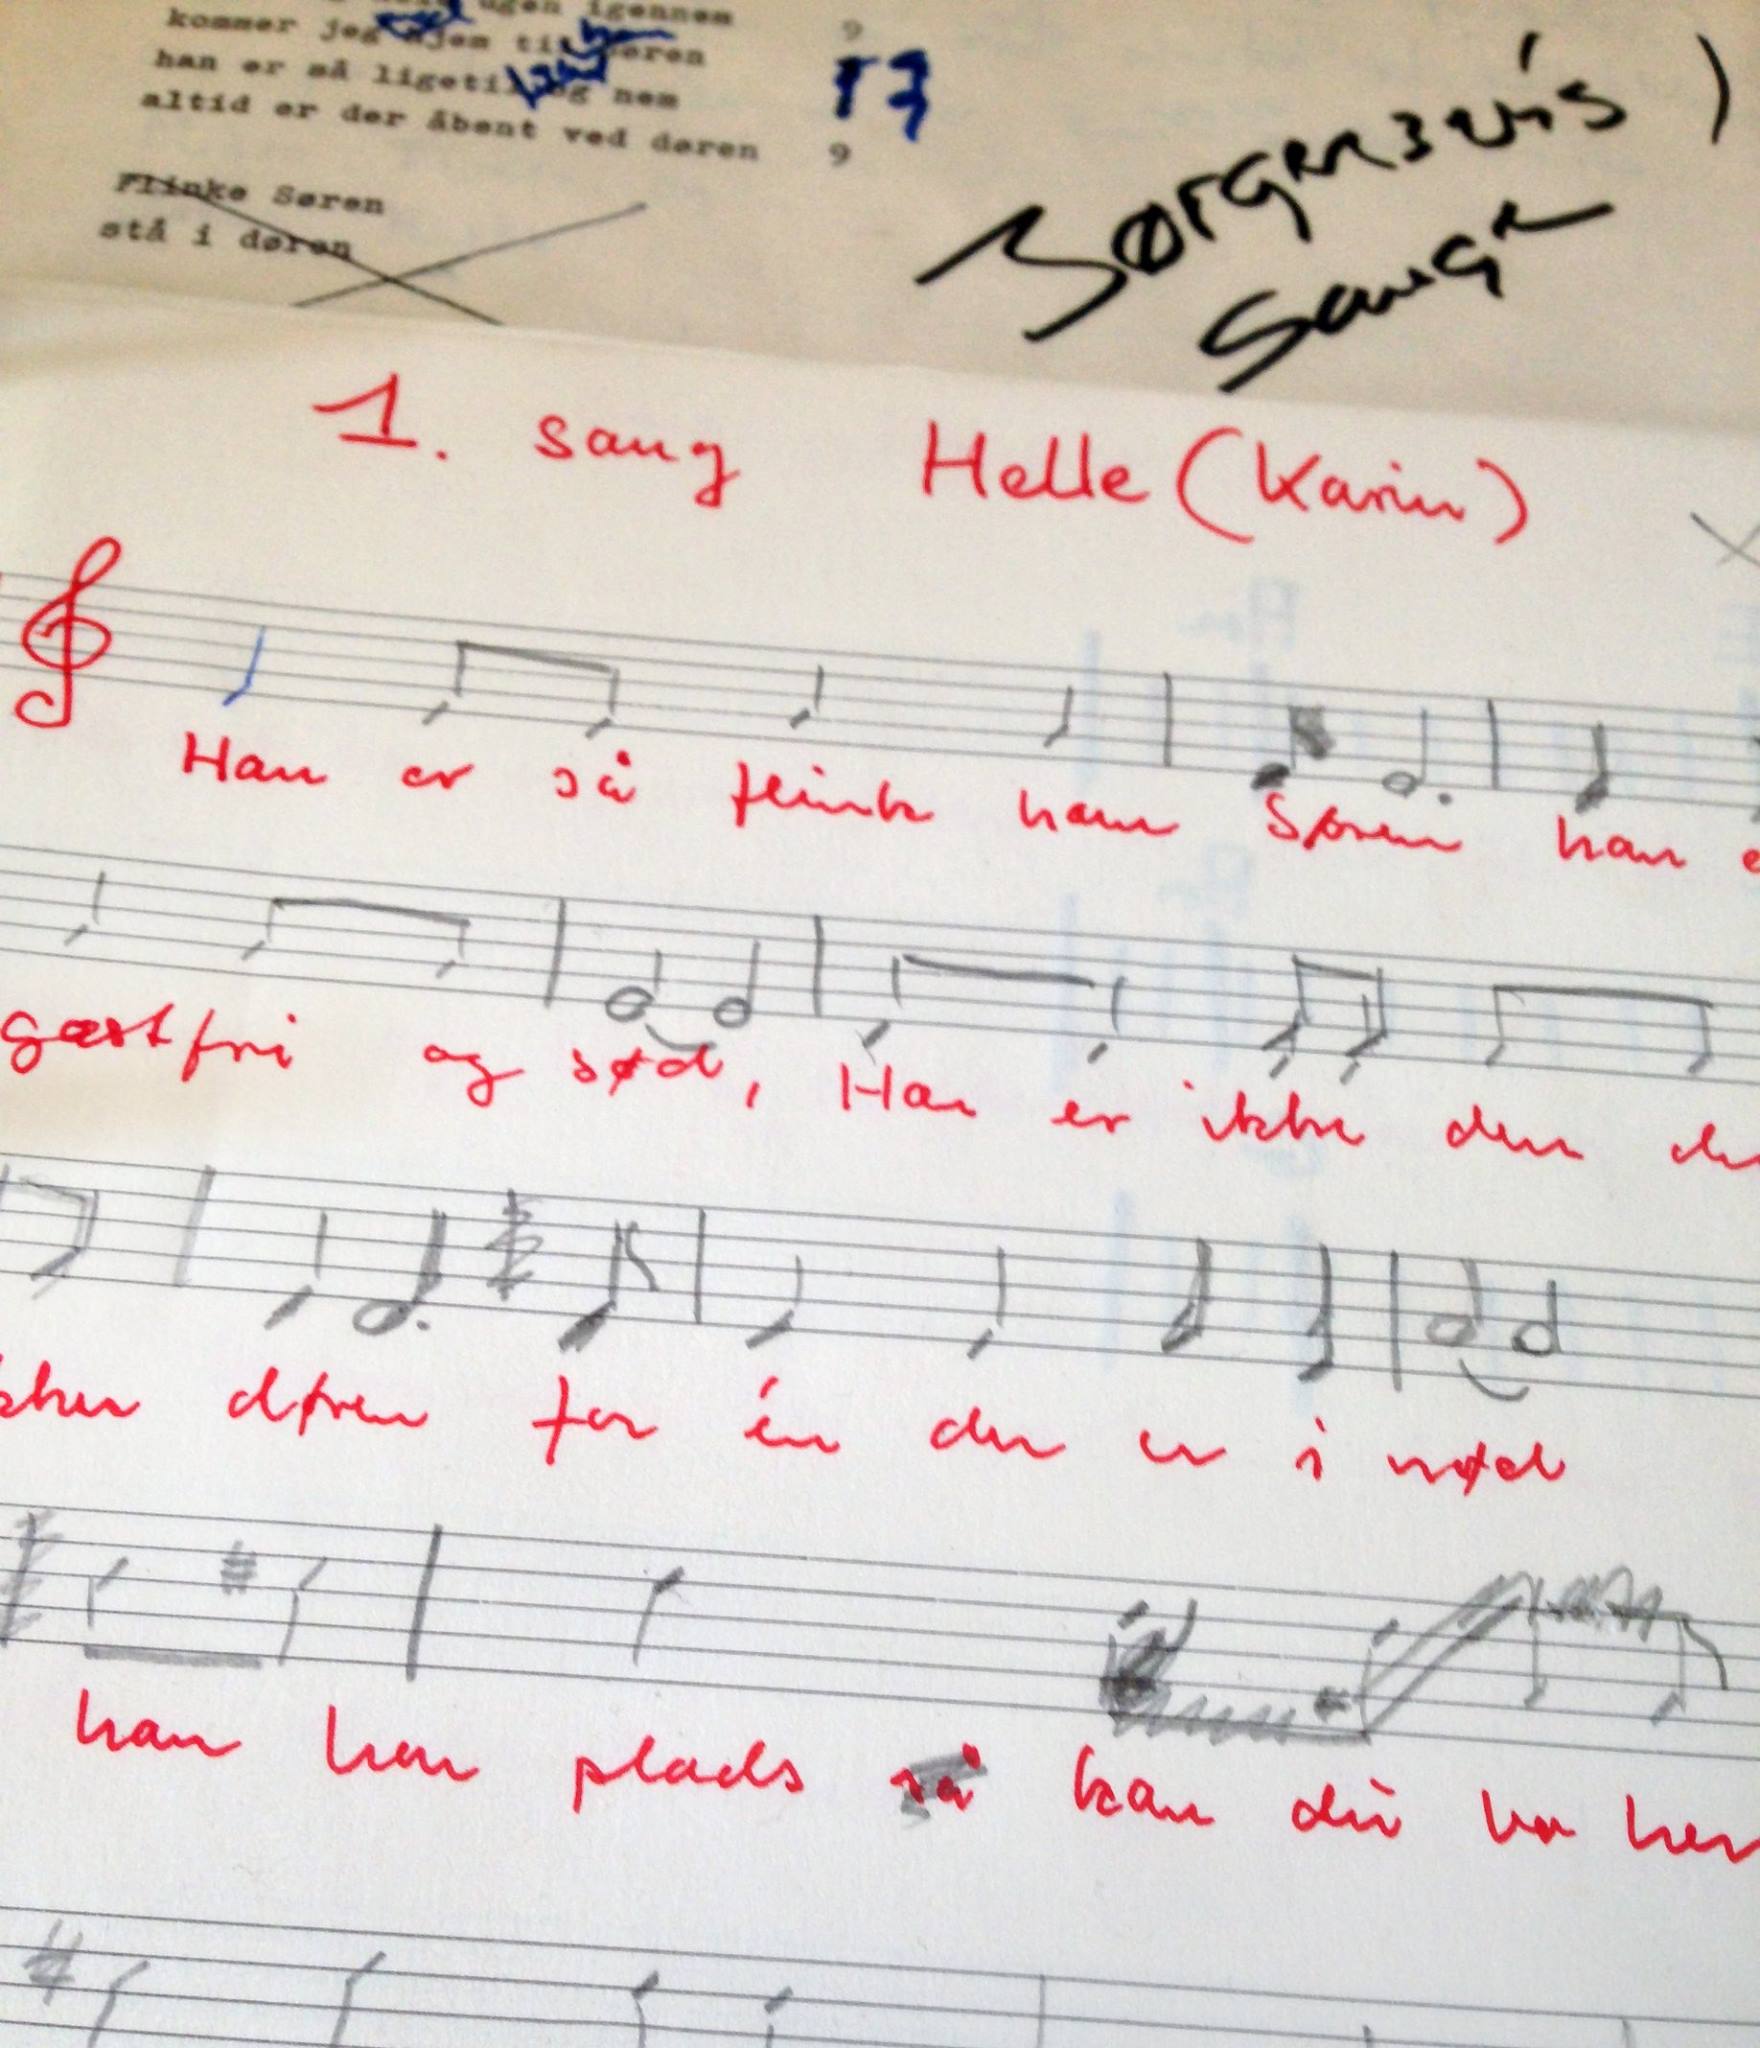 ugen igennem
kommer jeg hjem til Søren
han er så ligetil og nem
altid er der åbent ved døren 9
9
17
Flinke Søren
stå i døren
Børgensens
Sange
1. sang Helle (Karin)
Han er så flink ham Søren han e
gæstfri og sød, Han er ikke den de
kker døren for én der er i nød
han har plads så kan du va her